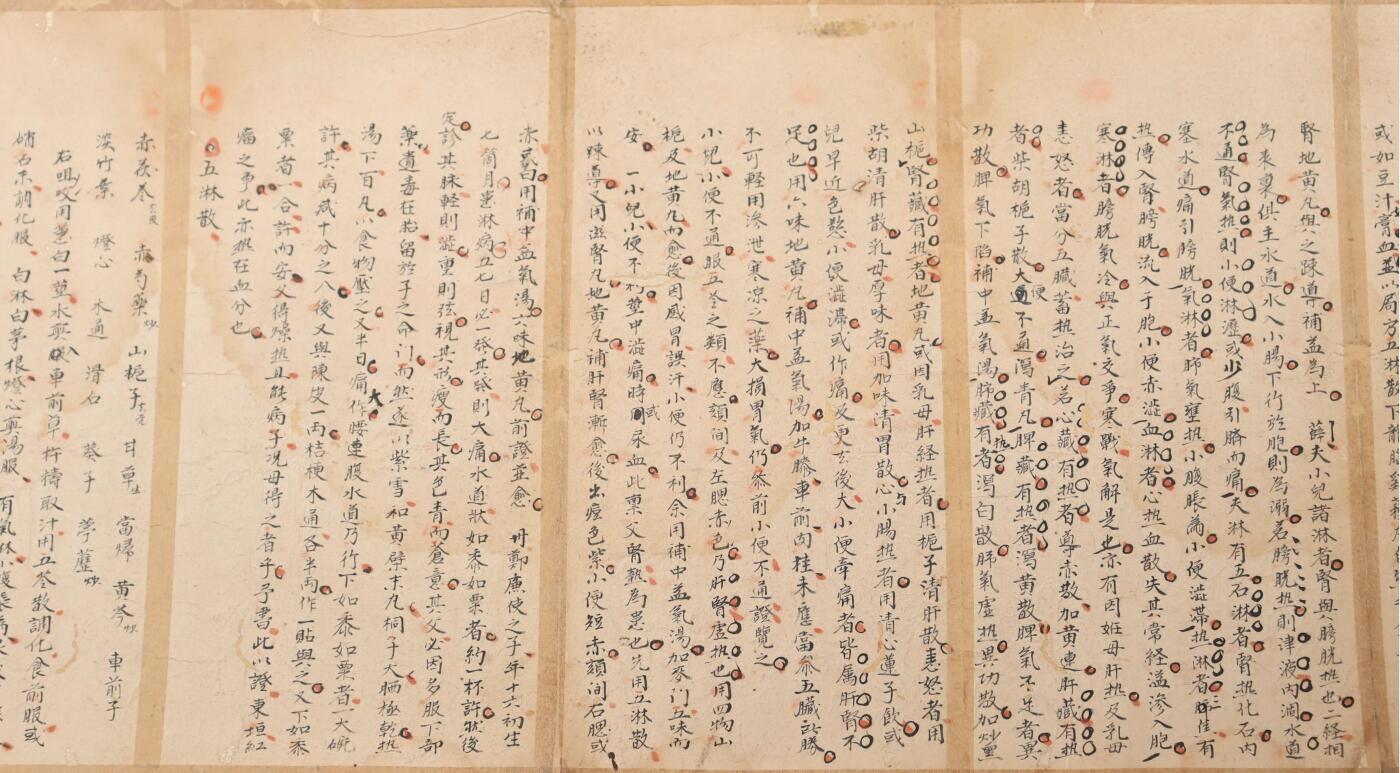 腎地黃丸與之踈導補益為上 薛夫小兒諸淋者腎與膀胱熱也二経相
為表裏俱主水道水入小腸下行於胞則為溺若膀胱熱則津液內涸水道
不通腎氣熱則小便淋瀝或少腹引臍而痛夫淋有五石淋者腎熱化石內
塞水道痛引膀胱氣淋者肺氣壅熱小腹脹滿小便澁滯熱淋者
熱傳入腎膀胱流入于胞小便赤澁血淋者心熱血散失其常経溢滲入胞
寒淋者膀胱氣冷與正氣交爭寒戰氣解是也亦有因姙母肝熱及乳母
恚怒者當分五臟蓄熱治之若心藏有熱者導赤散加黃連肝藏有熱
者柴胡梔子散大便不通瀉青丸脾藏有熱者瀉黃散脾氣不足者異
功散脾氣下陷補中益氣湯肺藏有熱者瀉白散肺氣虛熱異功散加炒黑
山梔腎藏有熱者地黃丸或因乳母肝経熱者用梔子清肝散恚怒者用
柴胡清肝散乳母厚味者用加味清胃散心小腸熱者用清心蓮子飲或
兒早近色慾小便澁滯或作痛及更衣後大小便牽痛者皆属肝腎不
足也用六味地黃丸補中益氣湯加牛膝車前肉桂未應當叅五臟所勝
不可軽用滲泄寒凉之藥大損胃氣仍叅前小便不通證覽之
小兒小便不通服五苓之類不應頦間及左腮赤色乃肝腎虛熱也用四物山
梔及地黃丸而愈後因感冒誤汗小便仍不利余用補中益氣湯加麥門五味而
安 一小兒小便不利莖中澁痛時或尿血此稟父腎熱為患也先用五淋散
以踈導又用滋腎丸地黃丸補肝腎漸愈後出痘色紫小便短赤頦間右腮或
赤或白用補中益氣湯六味地黃丸前證並愈 丹鄭廉使之子年十六初生
七箇月患淋病五七日必一發其發則大痛水道狀如黍如粟者約一杯許然後
定診其脉輕則澁重則弦視其形瘦而長其色青而蒼意其父必因多服下部
藥遺毒在胎留於子之命門而然遂以紫雪和黃蘗末丸桐子大栖極乾熱
湯下百丸以食物壓之又半日痛大作腰連腹水道乃行下如黍如粟者一大碗
許其病减十分之八後又與陳皮一两桔梗木通各半两作一貼與之又下如黍
粟者一合許而安父得燥热且能病子况母得之者乎予書此以證東垣紅
瘤之事此亦热在血分也
五淋散
赤茯苓 赤芍藥炒 山梔子 甘草生 當歸 黃芩炒 車前子
淡竹葉 燈心 木通 滑石 葵子 葶藶炒
右㕮咀用葱白一莖水煎 車前草杵擣取汁用五苓散調化食前服或
硝石末調化服 白淋白茅根燈心煎湯服